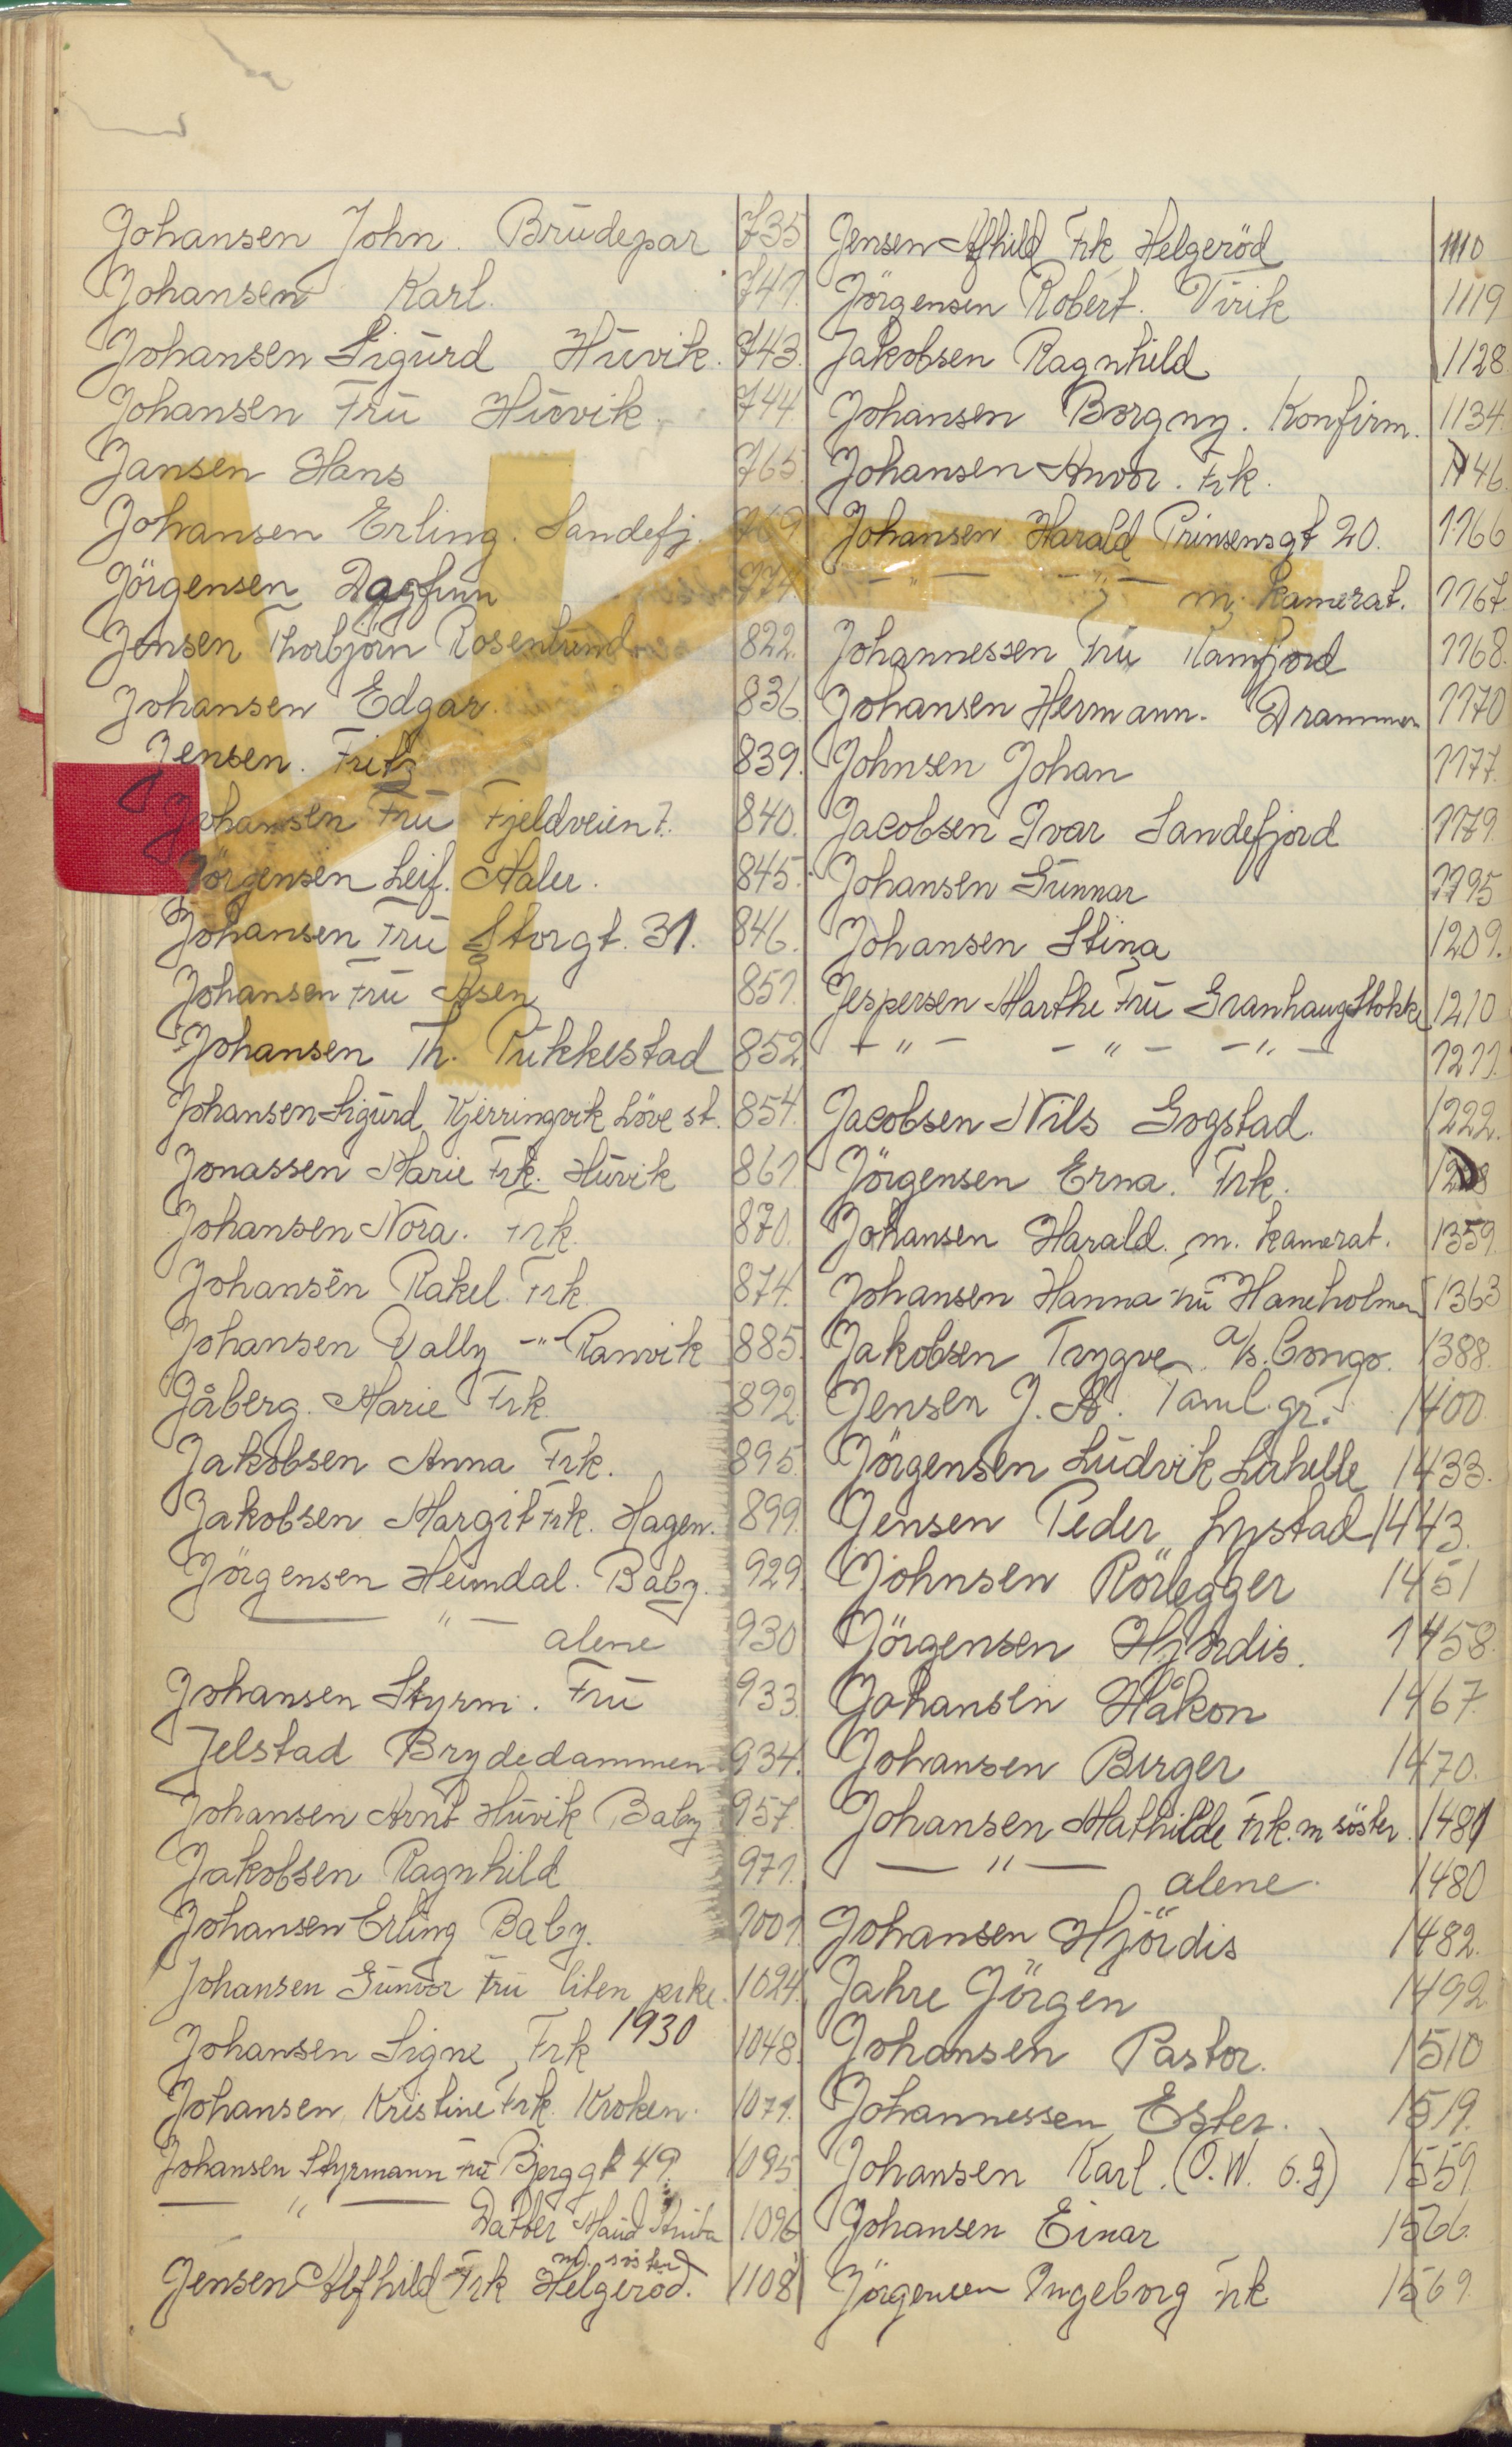 Johansen John. Brudepar 735
Johansen Karl. 741.
Johansen Sigurd Huvik. 743.
Johansen Fru Huvik. 744
Jansen Hans 765
Johansen Erling. Sandefj. 769
Jörgensen Dagfinn 774
Jensen Thorbjörn Rosenlund 822.
Johansen Edgar. 836
Jensen. Fritz 839.
Johansen Fru Fjeldveien 7. 840.
Jörgensen Leif. Maler. 845.
Johansen Fru Storgt. 31. 846.
Johansen Fru Åsen 851.
Johansen Th. Pukkestad 852.
Johansen Sigurd Kjerringvik Löve st. 854.
Jonassen Marie Frk. Huvik 861
Johansen Nora. Frk. 870.
Johansen Rakel. Frk. 874.
Johansen Vally -"- Ranvik 885.
Jåberg. Marie Frk. 892
Jakobsen Anna Frk. 895.
Jakobsen Margit Frk. Hagen. 899.
Jörgensen Heimdal. Baby. 929.
— " — alene 930
Johansen Styrm. Fru 933.
Jelstad Brydedammen 934.
Johansen Arnt Huvik Baby 957.
Jakobsen Ragnhild 971.
Johansen Erling Baby. 1001.
Johansen Gunvor Fru liten pike. 1024.
Johansen Signe Frk 1930 1048.
Johansen Kristine Frk. Kroken. 1071.
Johansen Styrmann Fru Bjerggt 49. 1095.
— " — Datter Maud 1096
Jensen Alfhild Frk Helgeröd. m. söster 1108
Jensen Alfhild Frk Helgeröd 1110
Jörgensen Robert. Virik 1119
Jakobsen Ragnhild 1128
Johansen Borgny. Konfirm. 1134.
Johansen Anvor. Frk. 1146
Johansen Harald Prinsensgt 20. 1166
— " — — " — m. kamerat. 1167
Johannessen Fru Ramfjord 1168.
Johansen Hermann. Drammen 1170
Johnsen Johan 1177.
Jacobsen Ivar Sandefjord 1179.
Johansen Gunnar 1195
Johansen Stina 1209.
Jespersen Marthe Fru Granhaug Stokke 1210
— " — — " — — " — 1211.
Jacobsen Nils Gogstad. 1222.
Jörgensen Erna. Frk.
Johansen Harald. m. kamerat. 1359.
Johansen Hanna Fru Haneholmen 1363
Jakobsen Trygve. a/s. Congo. 1388.
Jensen J. A. Faml. gr. 1400
Jörgensen Ludvik Lahelle 1433.
Jensen Peder Lystad 1443.
Johnsen Rörlegger 1451
Jörgensen Hjördis. 1458.
Johansen Håkon 1467.
Johansen Birger 1470.
Johansen Mathilde Frk. m söster. 1481
— " — alene. 1480
Johansen Hjördis 1482.
Jahre Jörgen 1492
Johansen Pastor. 1510
Johannessen Ester. 1519.
Johansen Karl. (O.W. 6.g) 1559.
Johansen Einar 1566.
Jörgensen Ingeborg Frk 1569.